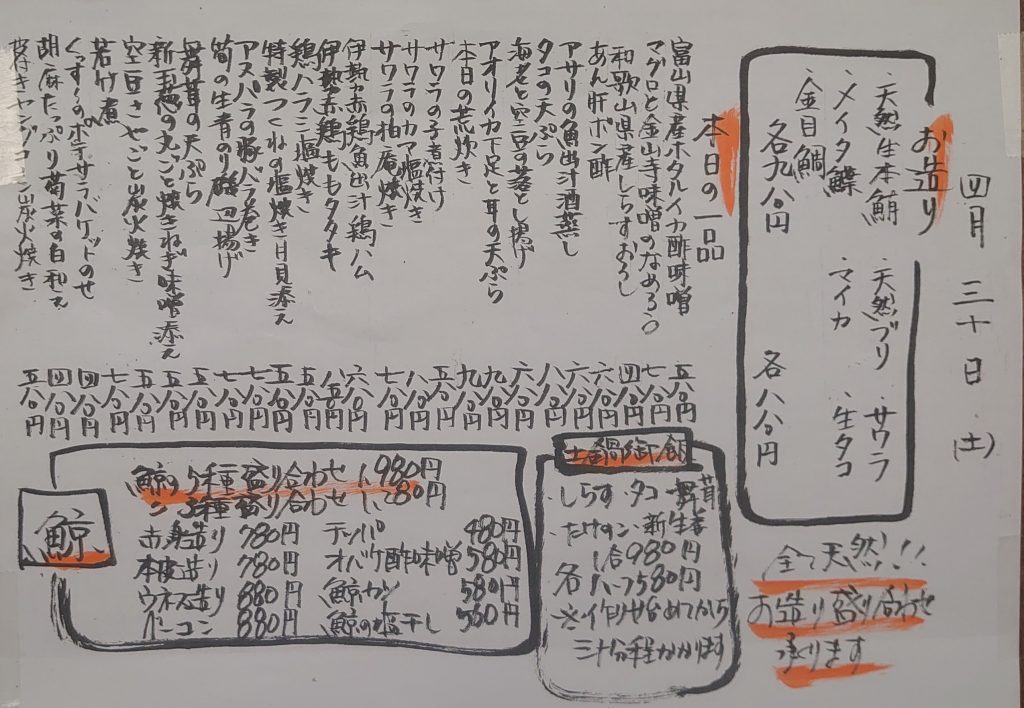 四月三十日(土)
お造り
・天然生本鮪 ・天然ブリ ・サワラ
・メイタ鰈 ・マイカ ・生タコ
・金目鯛
各九八〇円 各八八〇円
全て天然!!
お造り盛り合わせ
承ります
本日の一品
富山県産ホタルイカ酢味噌 五八〇円
マグロと金山寺味噌のなめろう 七八〇円
和歌山県産しらすおろし 四八〇円
あん肝ポン酢 六八〇円
アサリの魚出汁酒蒸し 六八〇円
タコの天ぷら 八八〇円
海老と空豆の落とし揚げ 六八〇円
アオリイカ下足と耳の天ぷら 九八〇円
本日の荒炊き 九八〇円
サワラの子煮付け 五八〇円
サワラのカマ塩焼き 八八〇円
サワラの柚庵焼き 七八〇円
伊勢赤鶏魚出汁鶏ハム 六八〇円
伊勢赤鶏ももタタキ 八五〇円
鶏ハラミ塩焼き 五八〇円
特製つくねの塩焼き月見添え 五五〇円
アスパラの豚バラ巻き 七八〇円
筍の生青のり磯辺揚げ 七八〇円
舞茸の天ぷら 五八〇円
新玉葱の丸ごと焼きねぎ味噌添え 五八〇円
空豆さやごと炭火焼き 五八〇円
若竹煮 七八〇円
くんせいのポテサラバゲットのせ 四八〇円
胡麻たっぷり菊菜の白和え 四八〇円
皮付きヤングコーン炭火焼き 五八〇円
土鍋御飯
・しらす・タコ・舞茸
・たけのこ・新生姜
1合980円
各ハーフ580円
※作り始めてから
三十分程かかります
鯨
鯨5種盛り合わせ 1,980円
〃3種盛り合わせ 1,280円
赤身造り 780円 テッパ 480円
本皮造り 780円 オバケ酢味噌 580円
ウネス造り 880円 鯨カツ 580円
ベーコン 880円 鯨の塩干し 580円